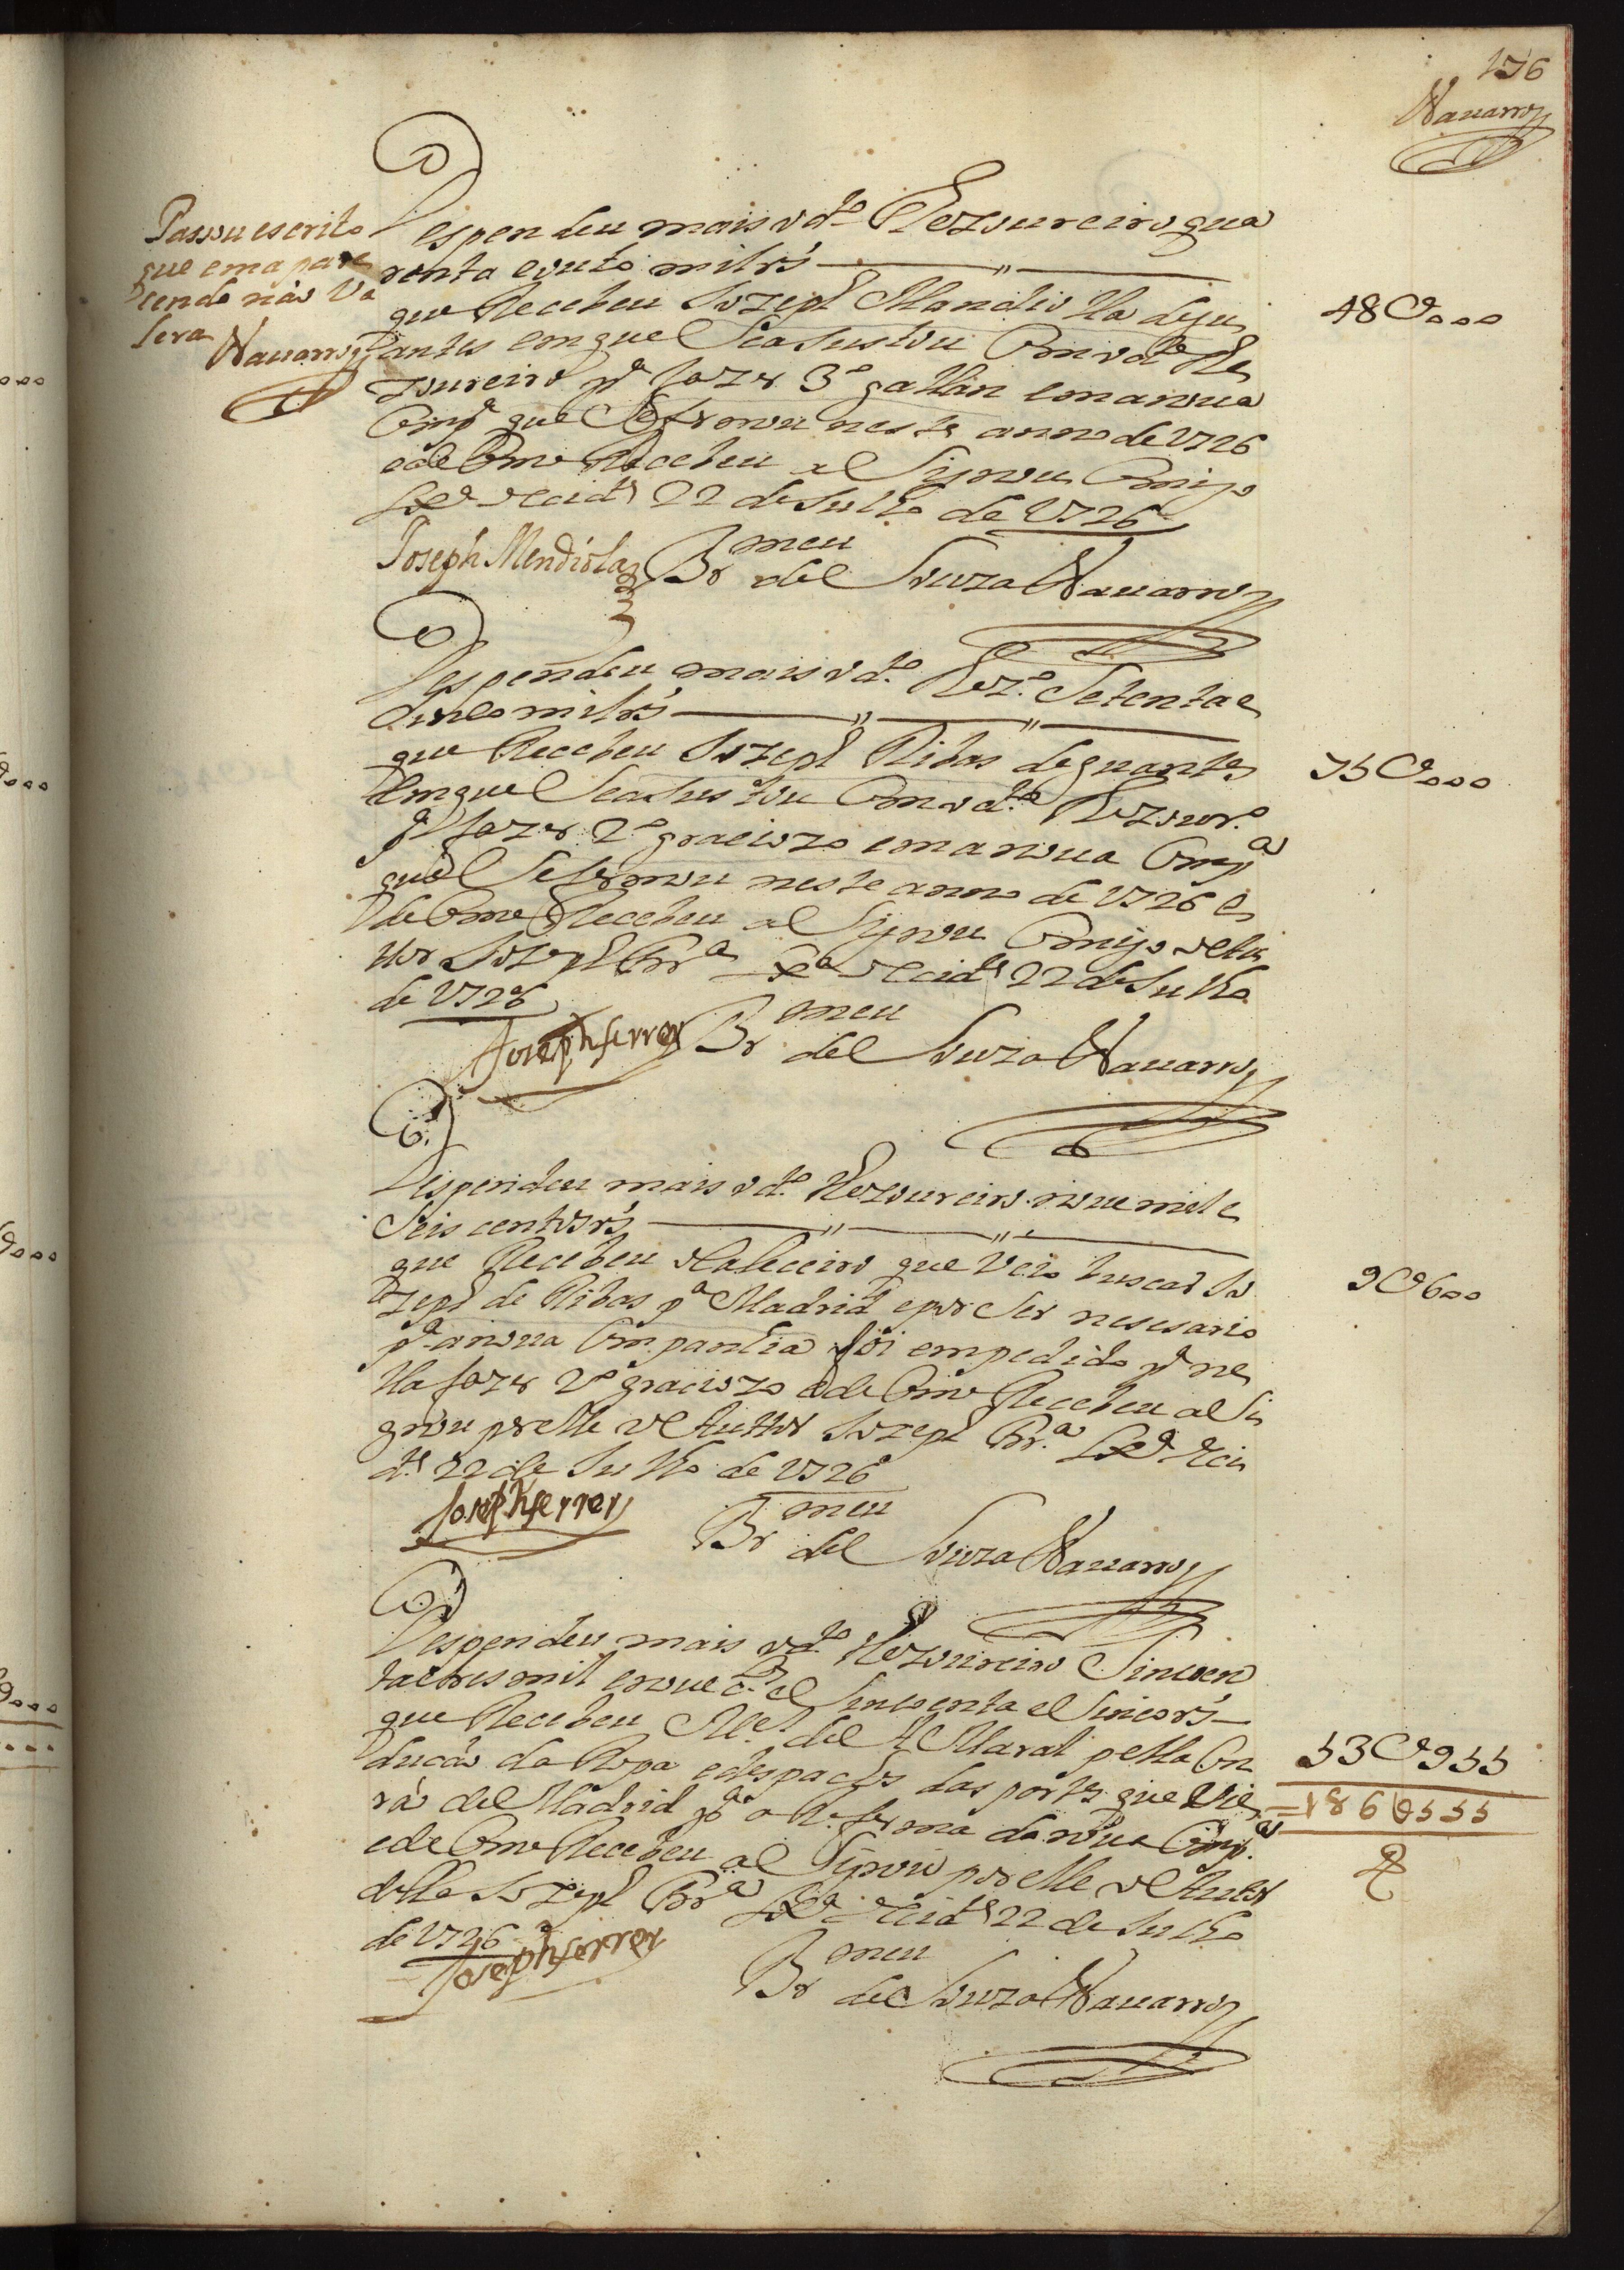 176
Nauarro
Passou escrito
que em apare
cendo não Va
lera
Nauarro
Despendeu mais o dto. Thezoureiro qua
renta e outo mil rs
que Recebeu Jozeph Mandiolla de gu
antes em que Se a Justou Com o dto. The
zoureiro pa. fazer 3o. gallan em a noua
Compa. que Se formou neste anno de 1726
e de Como Recebeu aSignou Comigo
Lxa. occidl. 22 de Julho de 1726
48U000
Joseph Mendiola
Br meu
del Souza Nauarro
Despendeu mais o dto. Thezo. Setenta e
Sinco mil rs
que Recebeu Jozeph Ribas de guantes
em que Se a Justou Com o dto. Thezouro.
pa. fazer 2o. graciozo em a noua Compa.
que Se formou neste anno de 1726 e
de Como Recebeu aSignou Comigo o Au
tor Jozeph Frra. Lxa. occidl. 22 de Julho
de 1726
75U000
Joseph ferrer
Br meu
del Souza Nauarro
Despendeu mais o dto. Thezoureiro noue mil e
Seis centos rs
que Recebeu o Caleceiro que Veio buscar Jo
zeph de Ribas pa. Madrid e por Ser nesesario
pa. a noua Companhia foi empedido pa. ne
lla fazer 2o. graciozo e de Como Recebeu aSi
gnou por elle o Auttor Jozeph Frra. Lxa. occi
dl. 22 de Julho de 1726
9U600
Joseph ferrer
Br meu
del Souza Nauarro
Despendeu mais o dto. Thezoureiro Sincoen
ta e tres mil e noue Ctos. e Sincoenta e Sinco rs
que Recebeu Mel. del Maral pella Con
ducão da Ropa e despachos das portas que Vie
rão del Madrid pa. a Reforma da noua Compa.
e de Como Recebeu aSignou por elle o Autor
della Jozeph Frra. Lxa. occidl. 22 de Julho
de 1726
53U955
186U555
Joseph ferrer
Br meu
del Souza Nauarro